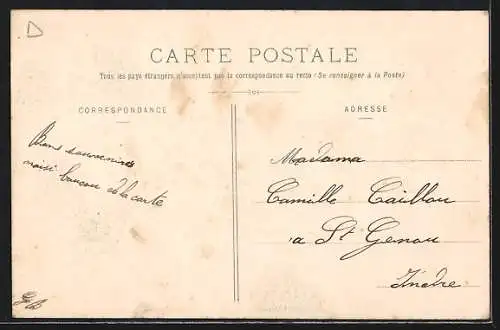 D
CARTE POSTALE
Tous les pays étrangers n'acceptent pas la correspondance au recto (Se renseigner à la Poste)
CORRESPONDANCE
ADRESSE
Bons souvenirs
de la carte
Madame
Camille Caillau
a St Genou
Indre